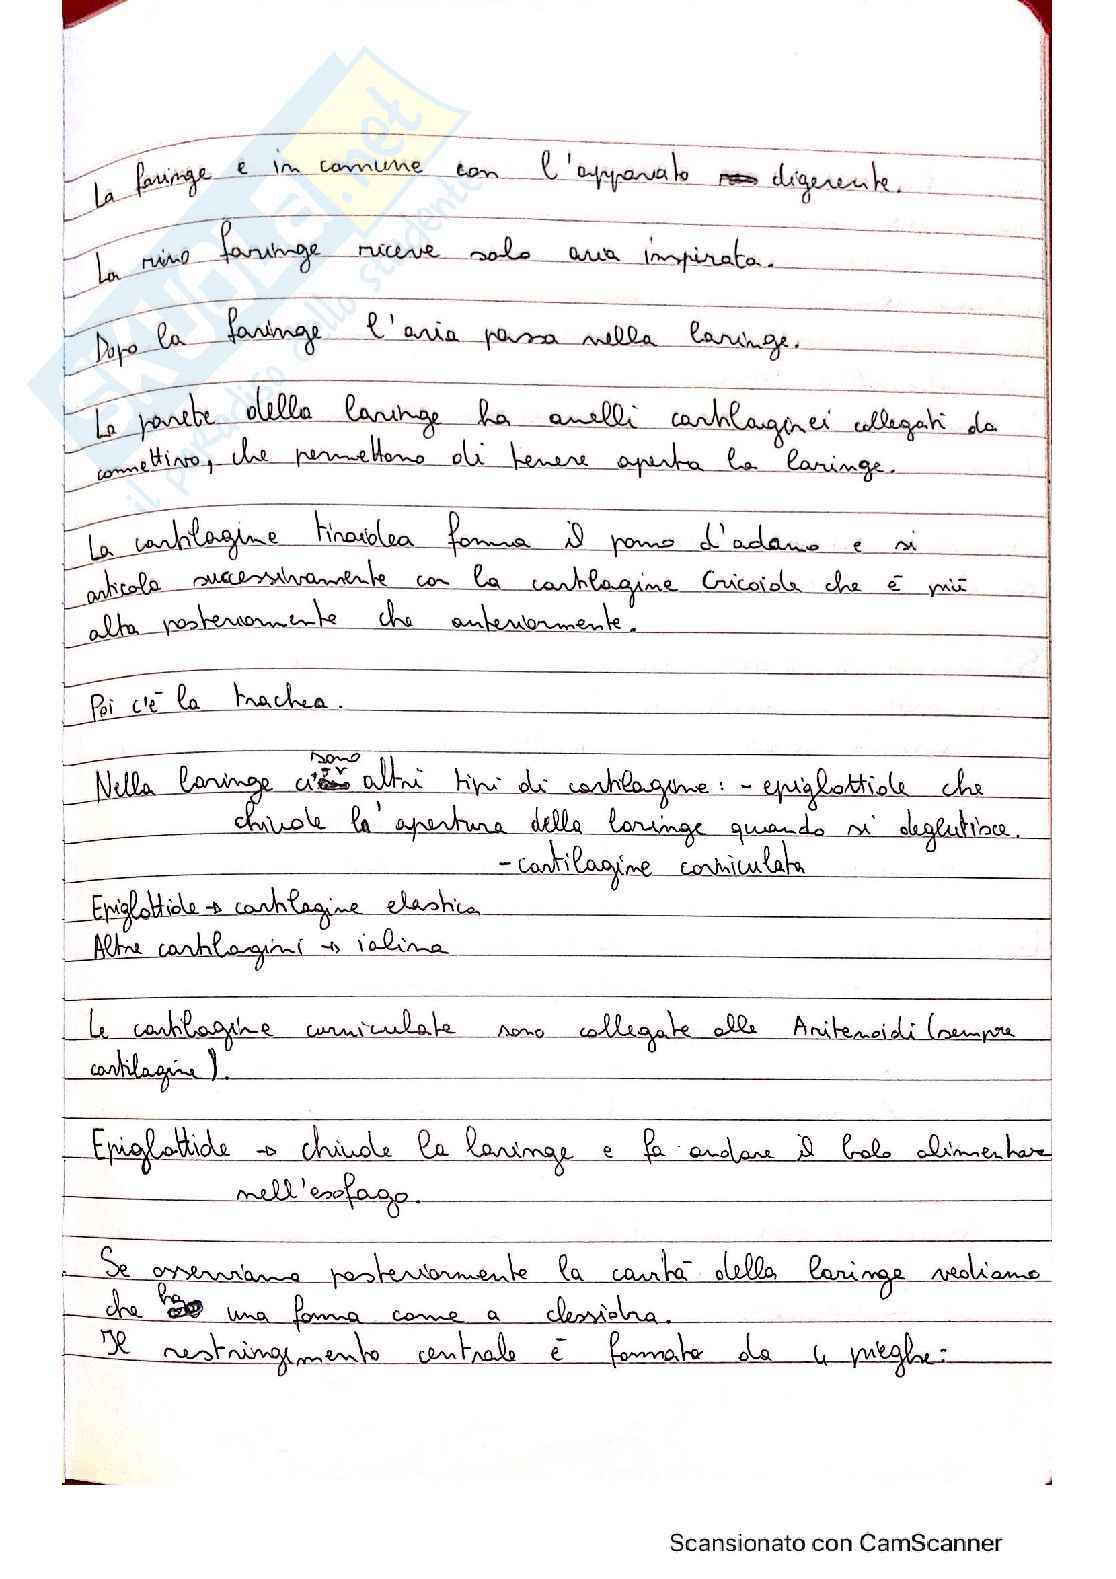 La faringe e in comune con l'apparato digerente.
La rino faringe riceve solo aria inspirata.
Dopo la faringe l'aria passa nella laringe.
La parete della laringe ha anelli cartilaginei collegati da
connettivo, che permettono di tenere aperta la laringe.
La cartilagine tiroidea forma il pomo d'adamo e si
articola successivamente con la cartilagine Cricoide che è più
alta posteriormente che anteriormente.
Poi c'è la trachea.
Nella laringe ci sono altri tipi di cartilagine: - epiglottide che
chiude la apertura della laringe quando si deglutisce.
- cartilagine corniculata
Epiglottide → cartilagine elastica
Altre cartilagini → ialina
Le cartilagine corniculate sono collegate alle Aritenoidi (sempre
cartilagine).
Epiglottide → chiude la laringe e fa andare il bolo alimentare
nell'esofago.
Se osserviamo posteriormente la cavità della laringe vediamo
che ha una forma come a clessidra.
Il restringimento centrale è formato da 4 pieghe:
SKUOLA.net
il paradiso dello studente
Scansionato con CamScanner